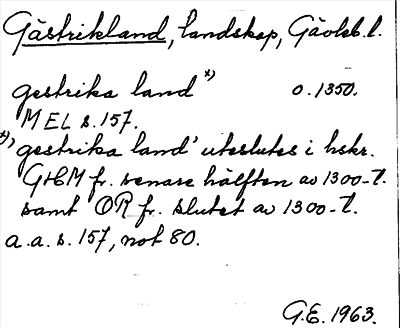 Gästrikland, landskap, Gävleb. l.
gestrika land *) o. 1350.
MEL s. 157.
*) 'gestrika land' uteslutes i hskr.
G+CM fr. senare hälften av 1300-t.
samt OR fr. slutet av 1300-t.
a.a. s. 157, not 80.
G.E. 1963.